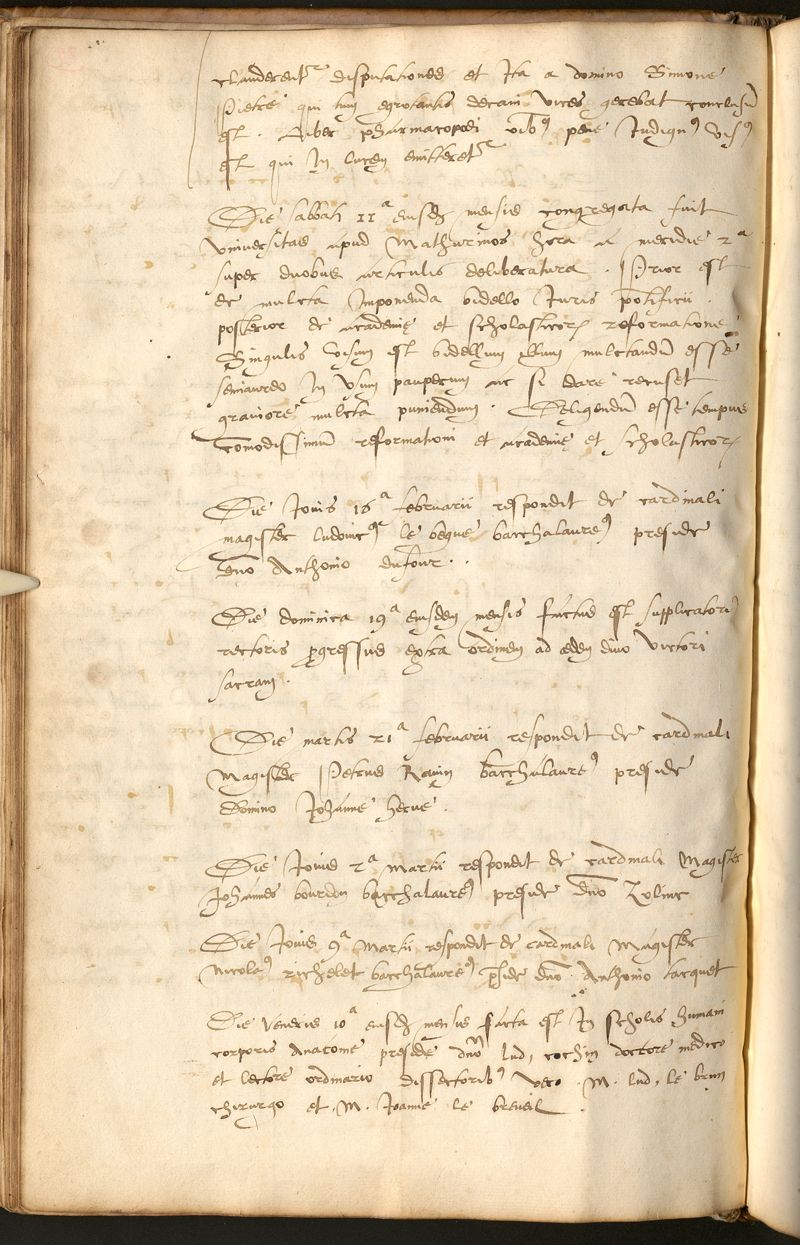 clauderentr disputationes et Ita a domino Simone
Pietre qui tum egrotantis decani vices gerebat conclusū
est. Liber pharmacopoei vibꝰ pene Indignꝰ visꝰ
est qui In lucem emitteretr
Die sabbati 11a eiusdē mensis congregata fuit
Universitas apud Mathurinos hora a meridie 2a
super duobus articulis deliberatura. Prior est
de mulcta Imponenda bidello Iuris pōtificii.
posterior de academie et scholasticorum reformatione
Singulis visum est bidellum illum mulctandū esse
semiaureo In Usum pauperum ac si dare recuset
graviore mulcta puniendum. Deligendū esse tempus
comodissimū reformationi et academie et scholasticorum
Die Iovis 16a februarii respondit de cardinali
magister ludovicꝰ le beque bacchalaureꝰ preside
dno Anthonio dufour.
Die dominica 19a eiusdem mensis factus est supplicatorꝰ
rectoris progressus extra ordinem ad edem divo victori
sacram.
Die martis 21a februarii respondit de cardinali
Magister Petrus Ravin bacchalaureꝰ preside
Domino Johanne herve.
Die Iovis 2a Martii respondit de cardinali Magister
Johannes bourdin bacchalaureꝰ preside dno
Die Iovis 9a Martii respondit de cardinali Magister
Nicolaꝰ richelet bacchalaureꝰ pside dno Anthonio tacquet
Die Veneris 10a eiusdē mensis facta est In scholis humani
corporis Anatome preside dno lud. cochin doctore medico
et lectore ordinario dissectoribꝰ vero. M. lud. le brun
chirurgo et. M. Joanne le breueil.